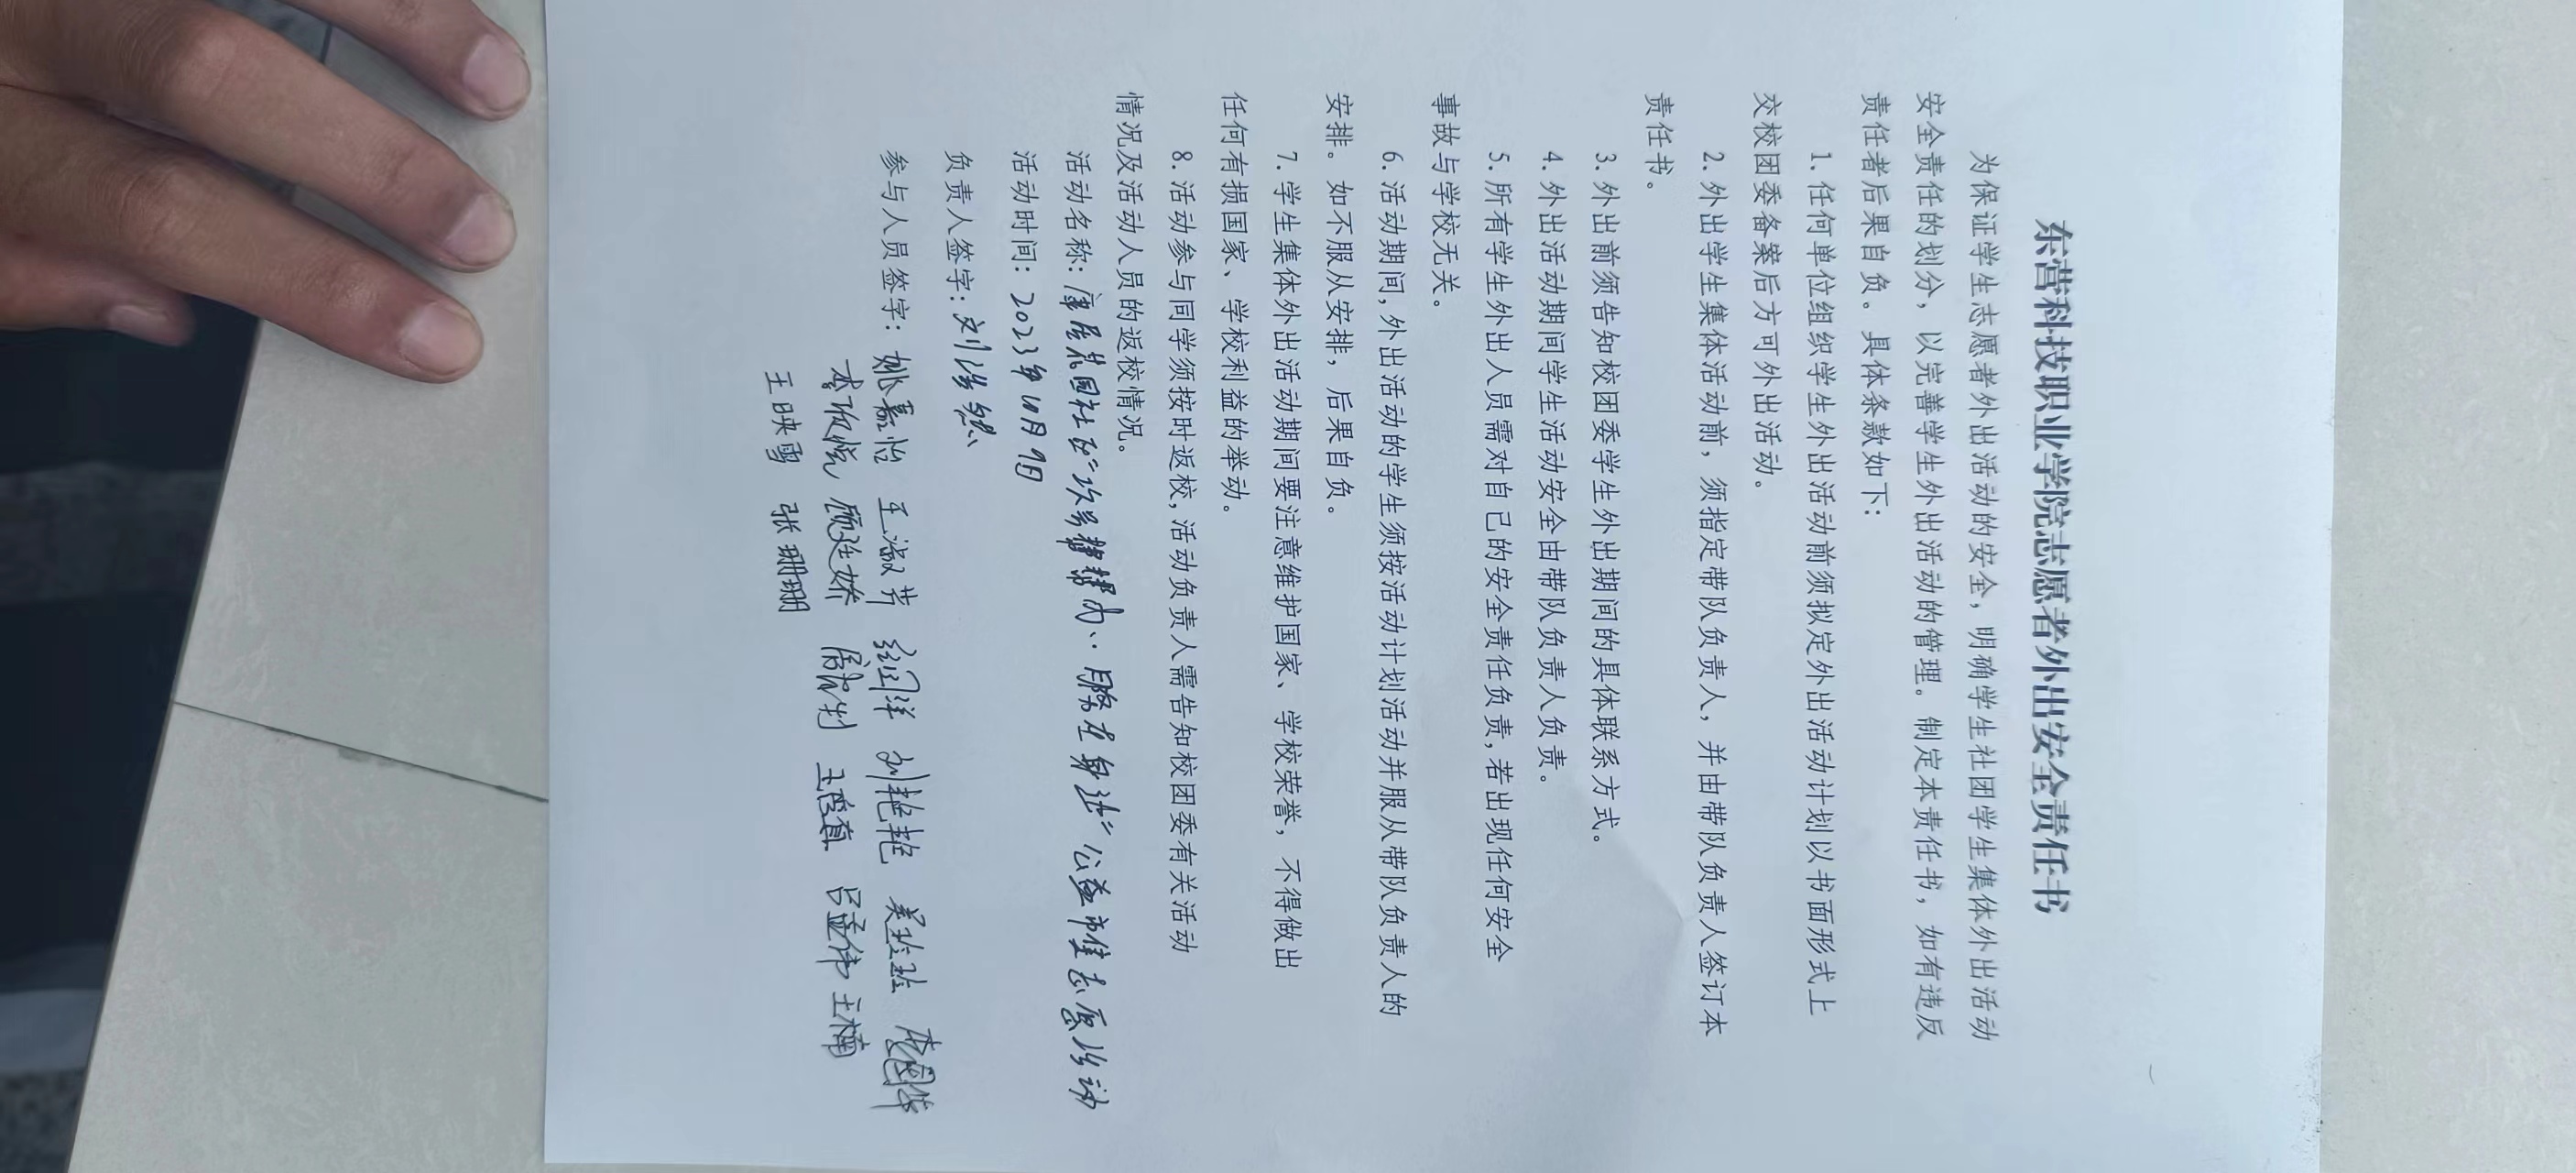 东营科技职业学院志愿者外出安全责任书
为保证学生志愿者外出活动的安全，明确学生社团学生集体外出活动
安全责任的划分，以完善学生外出活动的管理。制定本责任书，如有违反
责任者后果自负。具体条款如下：
1. 任何单位组织学生外出活动前须拟定外出活动计划以书面形式上
交校团委备案后方可外出活动。
2. 外出学生集体活动前，须指定带队负责人，并由带队负责人签订本
责任书。
3. 外出前须告知校团委学生外出期间的具体联系方式。
4. 外出活动期间学生活动安全由带队负责人负责。
5. 所有学生外出人员需对自已的安全责任负责，若出现任何安全
事故与学校无关。
6. 活动期间，外出活动的学生须按活动计划活动并服从带队负责人的
安排。如不服从安排，后果自负。
7. 学生集体外出活动期间要注意维护国家、学校荣誉，不得做出
任何有损国家、学校利益的举动。
8. 活动参与同学须按时返校，活动负责人需告知校团委有关活动
情况及活动人员的返校情况。
活动名称：康居花园社区"次乡 服在身边"公益市集志愿活动
活动时间：2023年10月9日
负责人签字：刘浩然
参与人员签字：姚嘉怡 王淑芳 刘艳艳 吴玲玲
顾廷娇 吕孟伟 王楠
王映雪 张珊珊